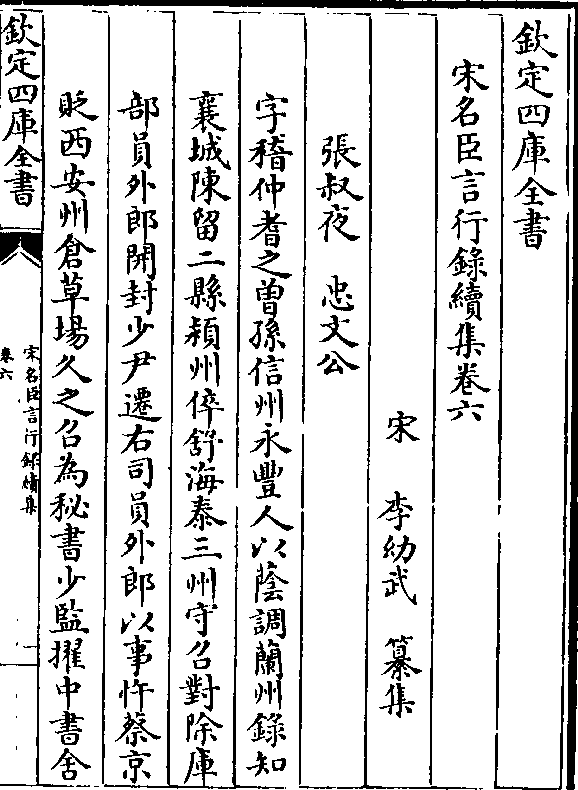 欽定四庫全書
宋名臣言行錄續集卷六
宋 李幼武 纂集
張叔夜 忠文公
字稽仲耆之曽孫信州永豐人以蔭調蘭州錄知
襄城陳留二縣潁州倅舒海泰三州守召對除庫
部員外郎開封少尹遷右司員外郎以事忤蔡京
貶西安州倉草場久之召為秘書少監擢中書舍
欽定四庫全書
宋名臣言行錄續集
卷六